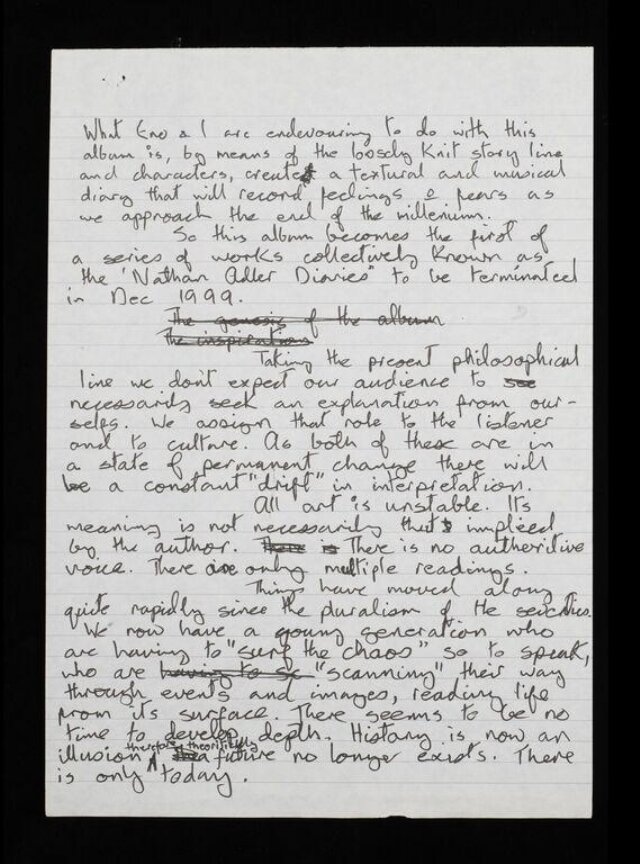 What Eno & I are endevouring to do with this
album is, by means of the loosely knit story line
and characters, create a textural and musical
diary that will record feelings & fears as
we approach the end of the millenium.
So this album becomes the first of
a series of works collectively known as
the 'Nathan Adler Diaries" to be terminated
in Dec 1999.
The genesis of the album
The inspiration
Taking the present philosophical
line we don't expect our audience to
necessarily seek an explanation from our-
selfs. We assign that role to the listener
and to culture. As both of these are in
a state of permanent change there will
be a constant "drift" in interpretation.
All art is unstable. Its
meaning is not necessarily that implied
by the author. There is There is no authoritive
voice. There are only multiple readings.
Things have moved along
quite rapidly since the pluralism of the seventies.
We now have a young generation who
are having to "surf the chaos" so to speak,
who are having to sc "scanning" their way
through events and images, reading life
from its surface. There seems to be no
time to develop depth. History is now an
therefore theoritically
illusion a future no longer exists. There
is only today.